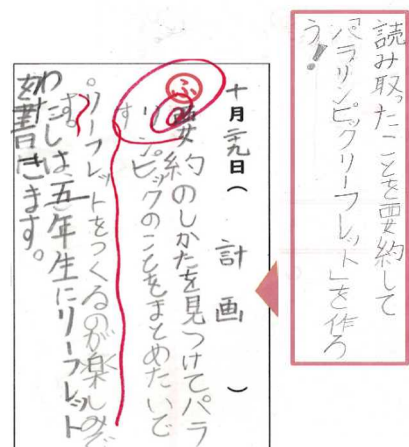 読み取ったことを要約して
「パラリンピックリーフレット」を作ろ
う!
十月二九日( 計画 )
ふ
要約のしかたを見つけてパラ
リンピックのことをまとめたいで
す
。リーフレットをつくるのが楽しみで
す
わたしは五年生にリーフレット
書きます。